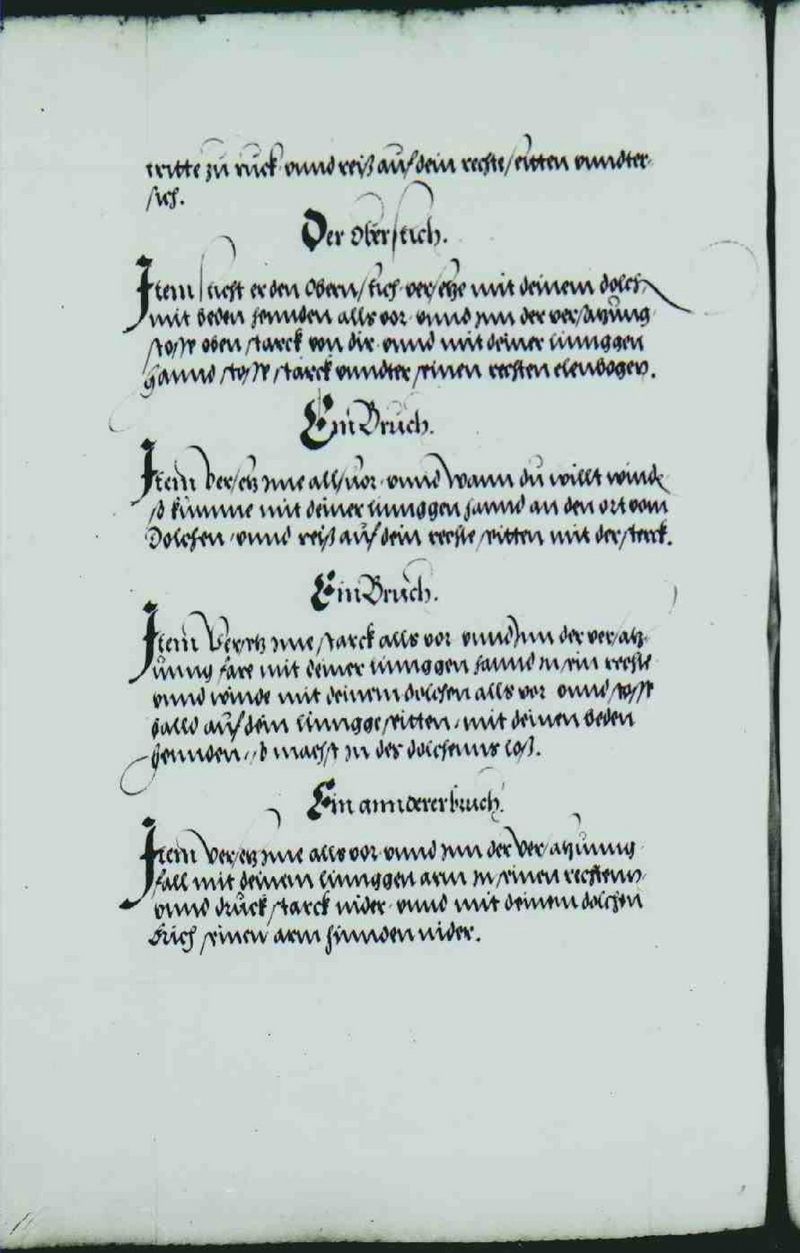 tritte zu ruck vnnd reiß auf dein rechte seitten vnndter
sich.
Der oberstich.
Item sticht er den Obern stich versetze mit deinem dolch
mit beden hennden alls vor vnnd jnn der versatzung
stosse oben starck von dir vnnd mit deiner linnggen
hannd stosse starck vnndter seinen rechten elenbogen.
Ein Bruch.
Item versetz jme alls vor vnnd wann du willt winde
so kumme mit deiner linnggen hannd an den ort vom
Dolchen vnnd reiß auf dein rechte seitten mit der sterck.
Ein Bruch.
Item Versetz jme starck alls vor vnnd jnn der versatz
unng fare mit deiner linnggen hannd jn sein rechte
vnnd winde mit deinem dolchen alls vor vnnd stosse
balld auf dein lingge seitten mit deinen beden
hennden so machst jn des dolchenns loß.
Ein annderer bruch.
Item versetz jme alls vor vnnd jnn der versatzunng
fall mit deinem linnggen arm jn seinen rechtenn
vnnd druck starck nider vnnd mit deinem dolchen
Brich seinen arm hinnden nider.